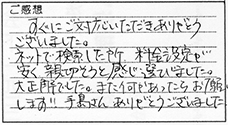 ご感想
すぐにご対応いただきありがとう
ございました。
ネットで検索した所 料金設定が
安く、親切そうと感じ選びました。
大正解でした。また何かあったらお願い
します!! 手島さん ありがとうございました